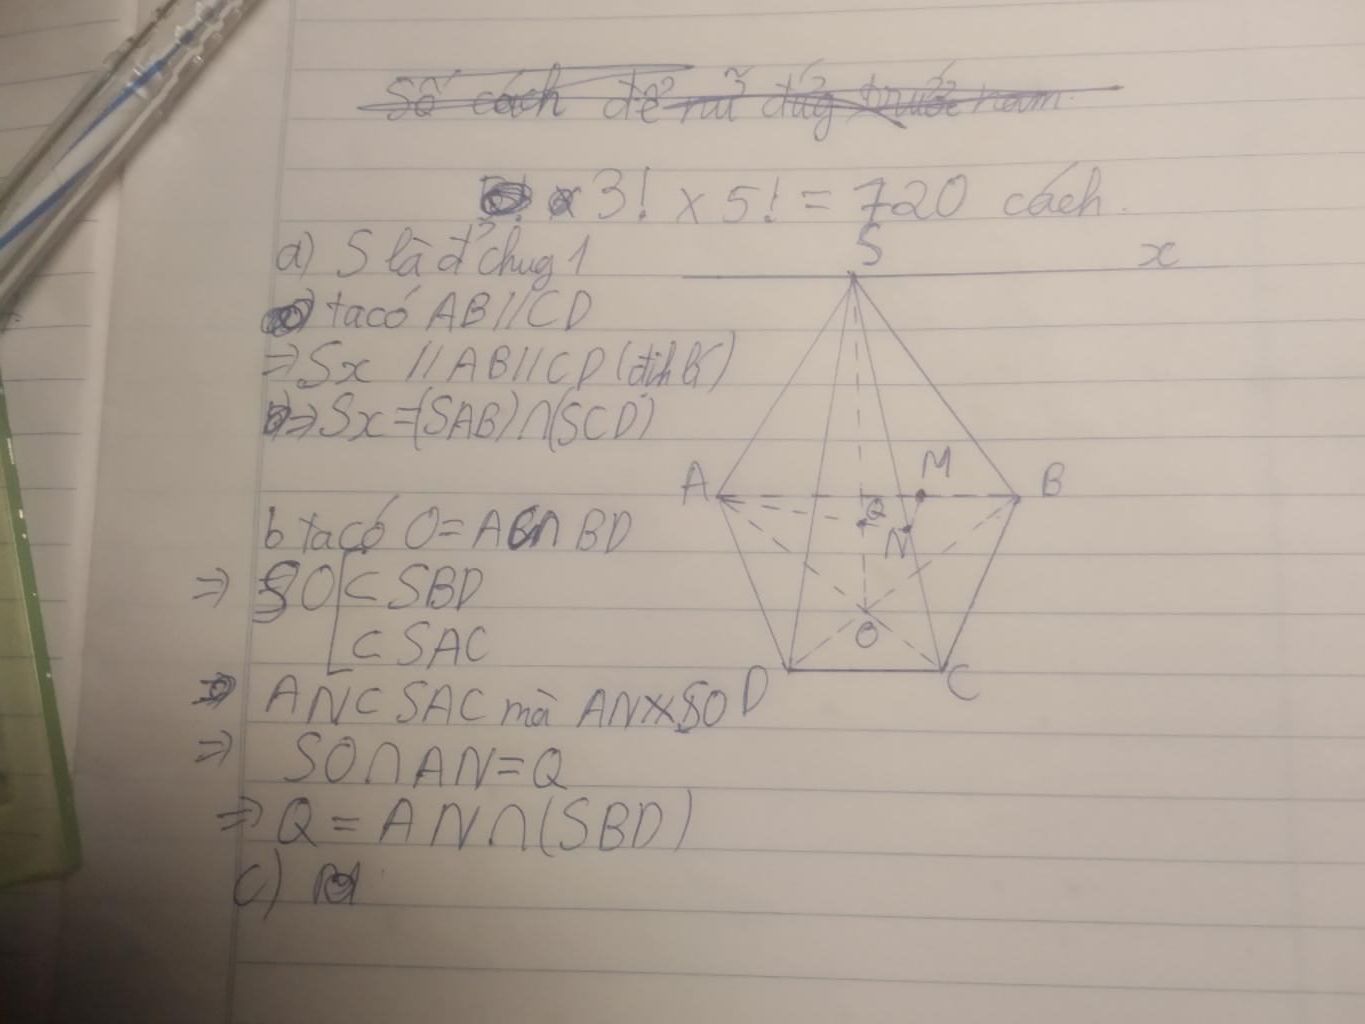 Số cách để nữ đứng trước nam.
x 3! x 5! = 720 cách.
a) S là đ' chug 1
S
x
ta có AB//CD
=> Sx //AB//CD (định lí)
=> Sx=(SAB)∩(SCD)
M
A
B
Q
N
b ta có O=AC∩BD
=> SO[⊂ SBD
⊂ SAC
O
D
C
AN⊂SAC mà AN∦SO
=> SO∩AN=Q
=> Q=AN∩(SBD)
c)